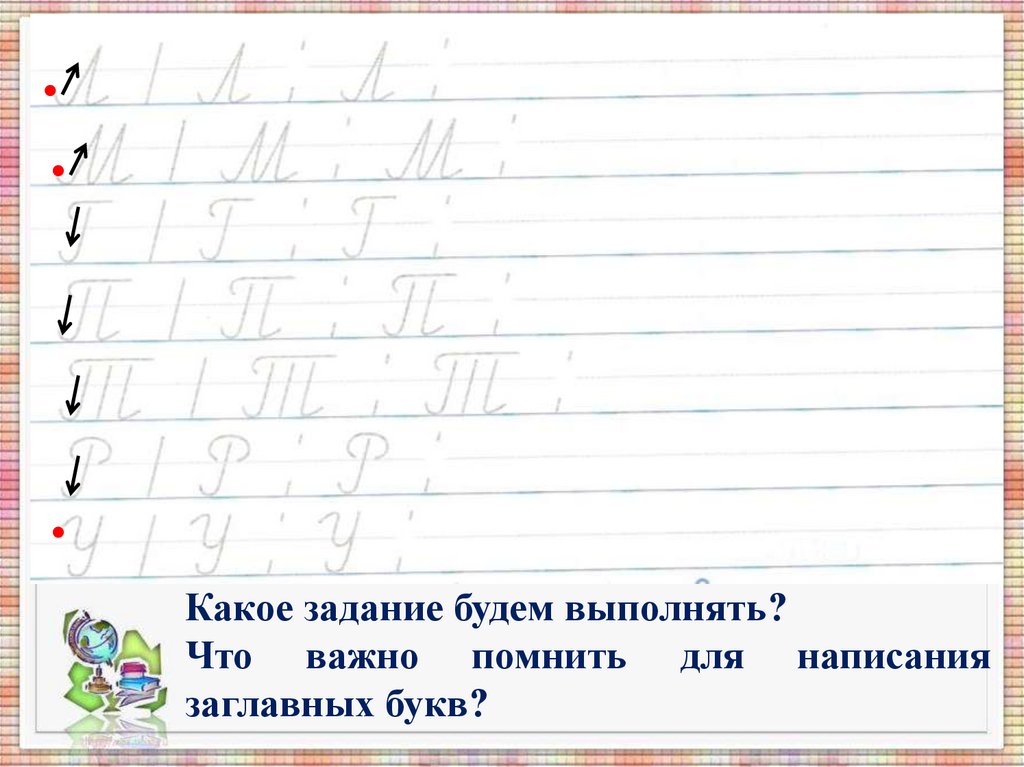 Л Л Л
М М М
Г Г Г
П П П
Т Т Т
Р Р Р
У У У
Какое задание будем выполнять?
Что важно помнить для написания
заглавных букв?